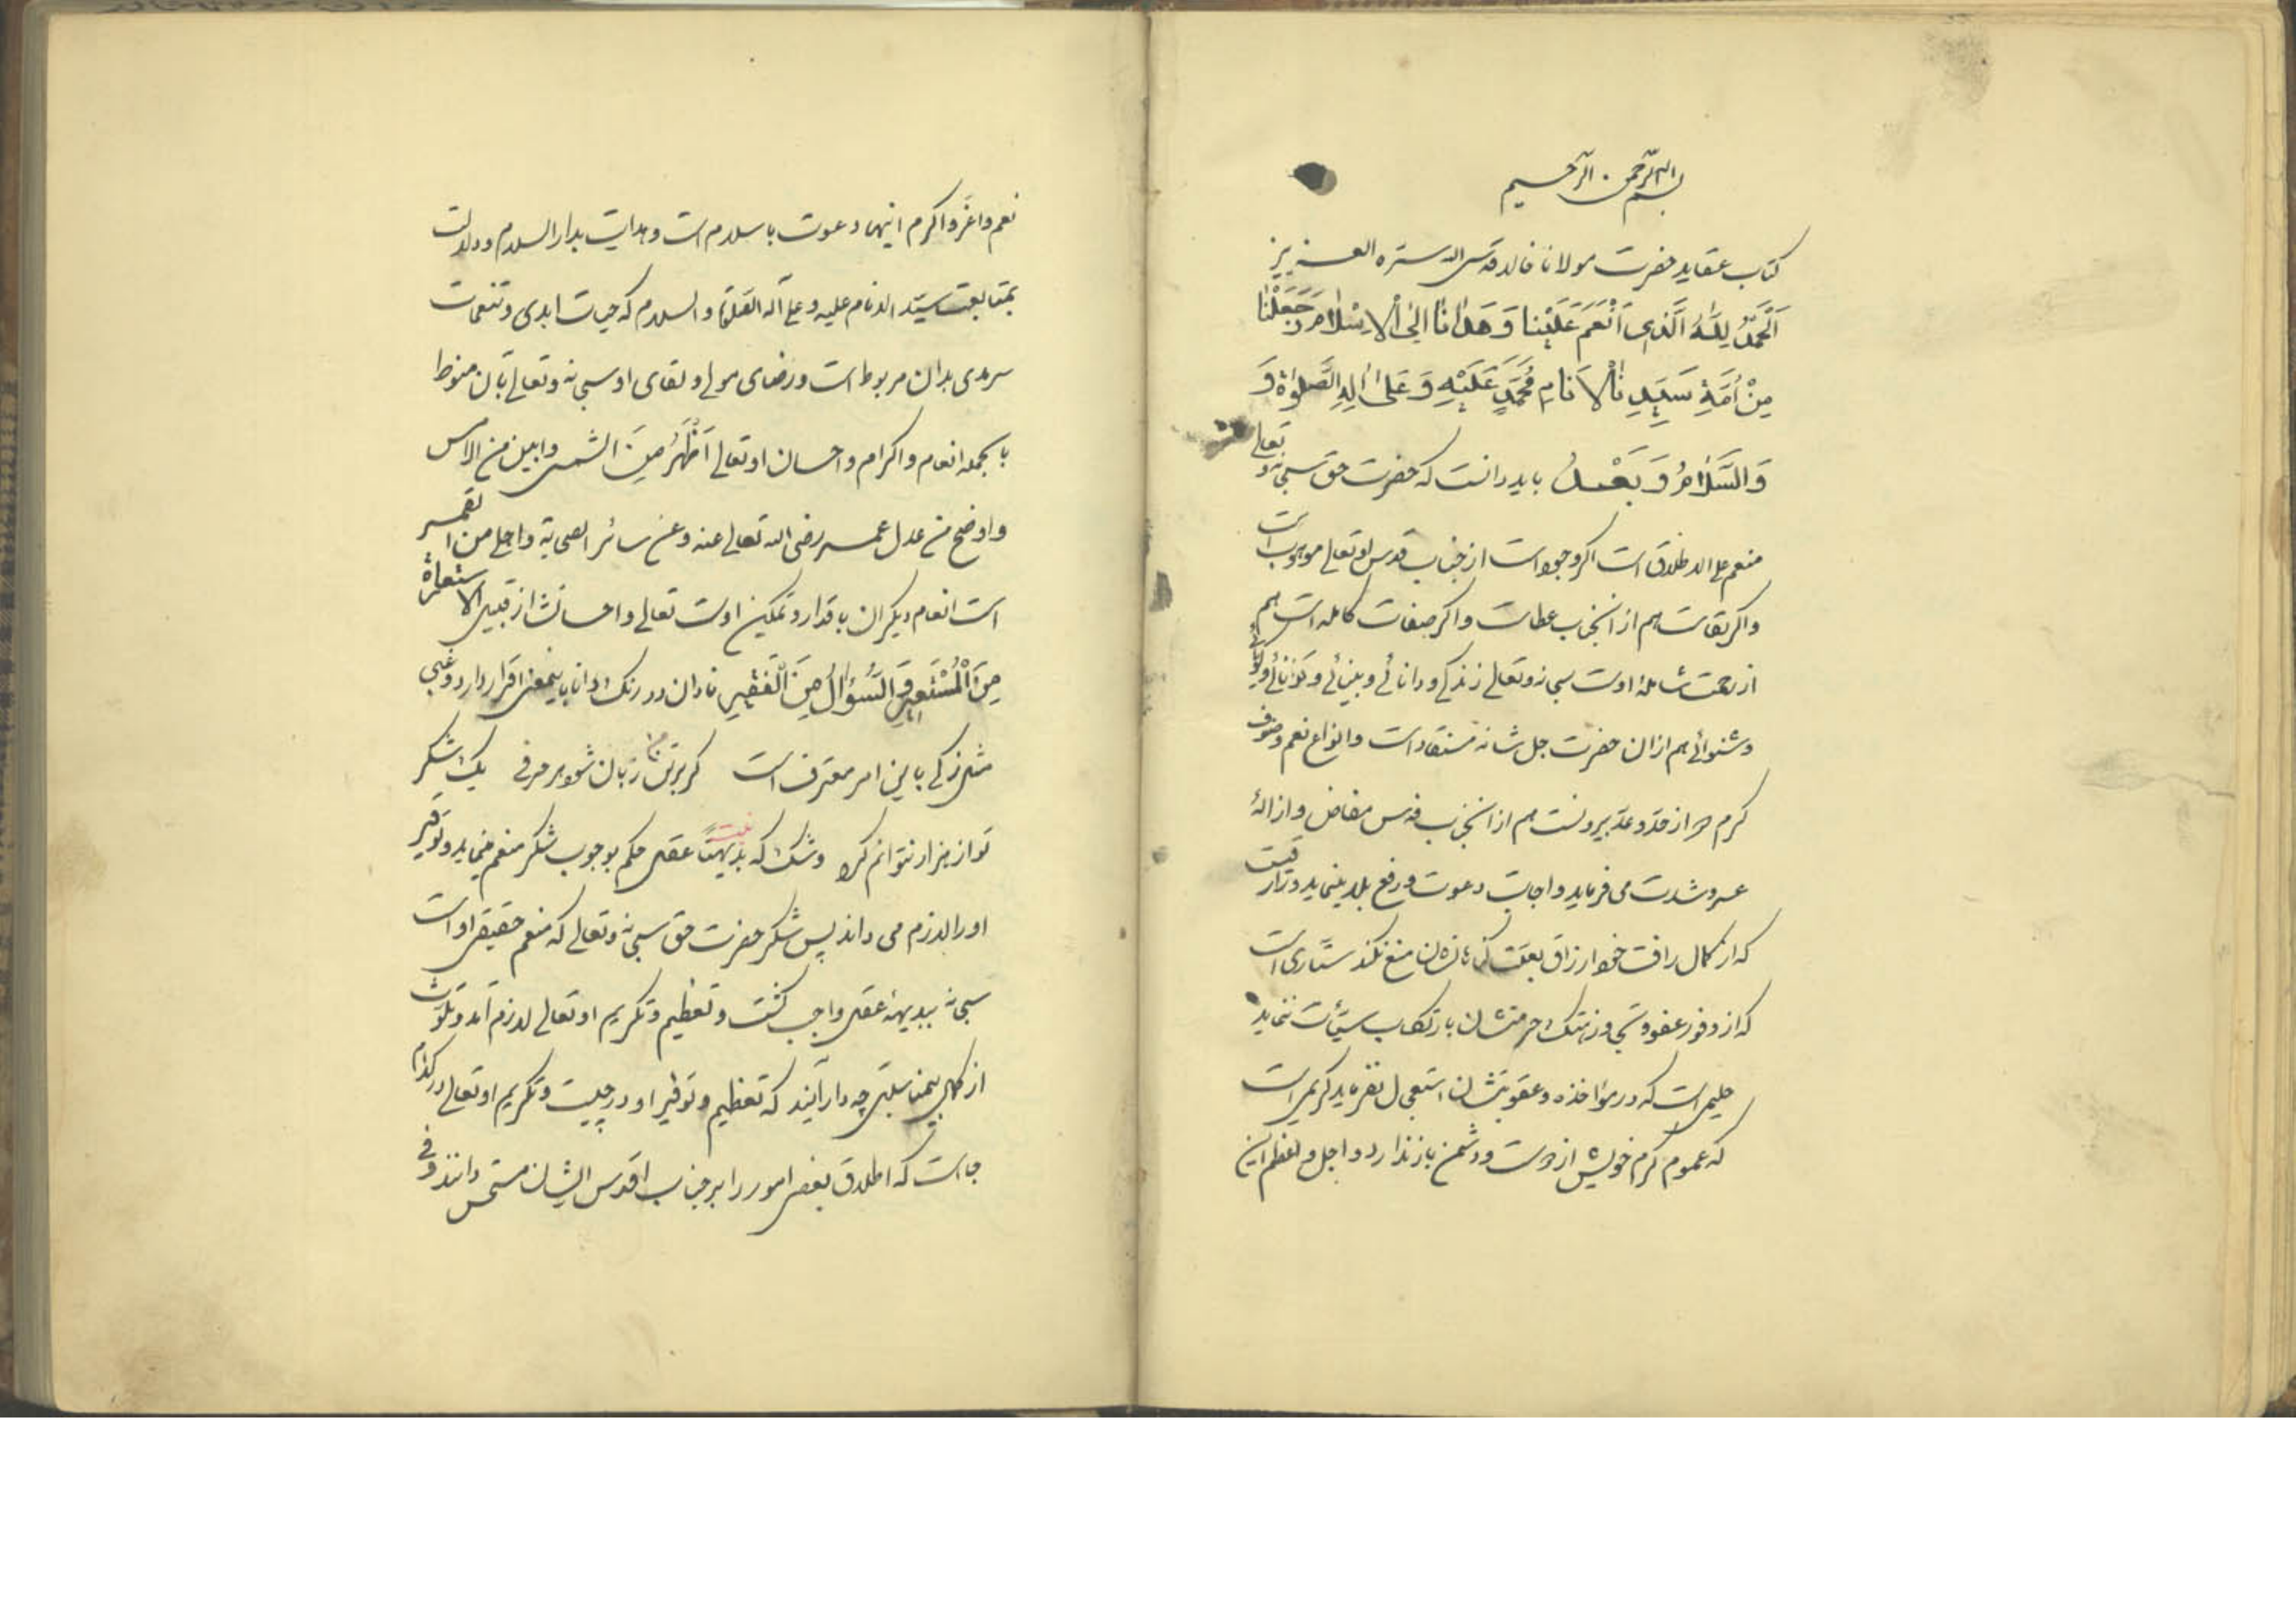 بسم الله الرحمن الرحیم
کتاب عقاید حضرت مولانا خالد قدس الله سره العزیز
اَلْحَمْدُ لِلّٰهِ الَّذِی اَنْعَمَ عَلَیْنا وَ هَدانا اِلیٰ الْاِسْلامِ وَ جَعَلْنا
مِنْ اُمَّةِ سَیِّدِ نٰالْاَنامِ مُحَمَّدٍ عَلَیْهِ وَ عَلیٰ اٰلِهِ الصَّلوٰةُ وَ
وَالسَّلامُ وَ بَعْدُ باید دانست که حضرت حق سبحانه و تعالی
منعم علی الاطلاق است اگر وجود است از جناب قدس او تعالی موهوب است
و اگر بقاست هم از آنجناب عطاست و اگر صفات کامله است هم
از رحمت شاملهٔ اوست سبحانه و تعالی زندگی و دانائی و بینائی و توانائی و گویائی
و شنوائی هم ازان حضرت جل شانه مستفاد است و انواع نعم و صنوف
کرم که از حد و عد بیرونست هم از آنجناب قدس مفاض و ازالهٔ
عسر و شدت می فرماید و اجابت دعوت و رفع بلا مینماید رزاقیست
که از کمال رافت خود ارزاق بعلت گناه از بندگان منع نکند ستاری است
که از وفور عفو و تجاوز هتک حرمتشان بارتکاب سیئات ننماید
حلیمی است که در مواخذه و عقوبتشان استعجال نفرماید کریمی است
که عموم کرم خویش از دوست و دشمن باز ندارد و اجل و اعظم این
نعم و اعز و اکرم اینها دعوت باسلام است و هدایت بدار السلام و دلالت
بمتابعت سید الانام علیه و علی آله الصلوة و السلام که حیات ابدی و تنعمات
سرمدی بدان مربوط است و رضای مولی و لقای او سبحانه و تعالی بآن منوط
بالجمله انعام و اکرام و احسان او تعالی اَظْهَرُ مِنَ الشمس و ابین من الامس
و اوضح من عدل عمر رضی الله تعالی عنه و عن سائر الصحابة و اجلی من القمر
است انعام دیگران باقدار و تمکین اوست تعالی و احسانش از قبیل الاستعارة
مِنَ الْمُسْتَعیرِ وَ السُّؤالُ مِنَ الْفَقیرِ نادان در رنگ دانا باینمعنی اقرار دارد و غبی
مثل زکی باین امر معترف است گر برتن من زبان شود هر مرفی یک شکر
تو از هزار نتوانم کرد و شک نیست که بدیهتاً عقل حکم بوجوب شکر منعم مینماید و توقیر
او را لازم می داند پس شکر حضرت حق سبحانه و تعالی که منعم حقیقی او است
سبحانه ببدیههٔ عقل واجب گشت و تعظیم و تکریم او تعالی لازم آمد و تلوث
از کمال بیمناسبتی چه دارایند که تعظیم و توقیر او در چیست و تکریم او تعالی در کدام
جا است که اطلاق بعضی امور را بر جناب اقدس ایشان مستحسن دانند و فی